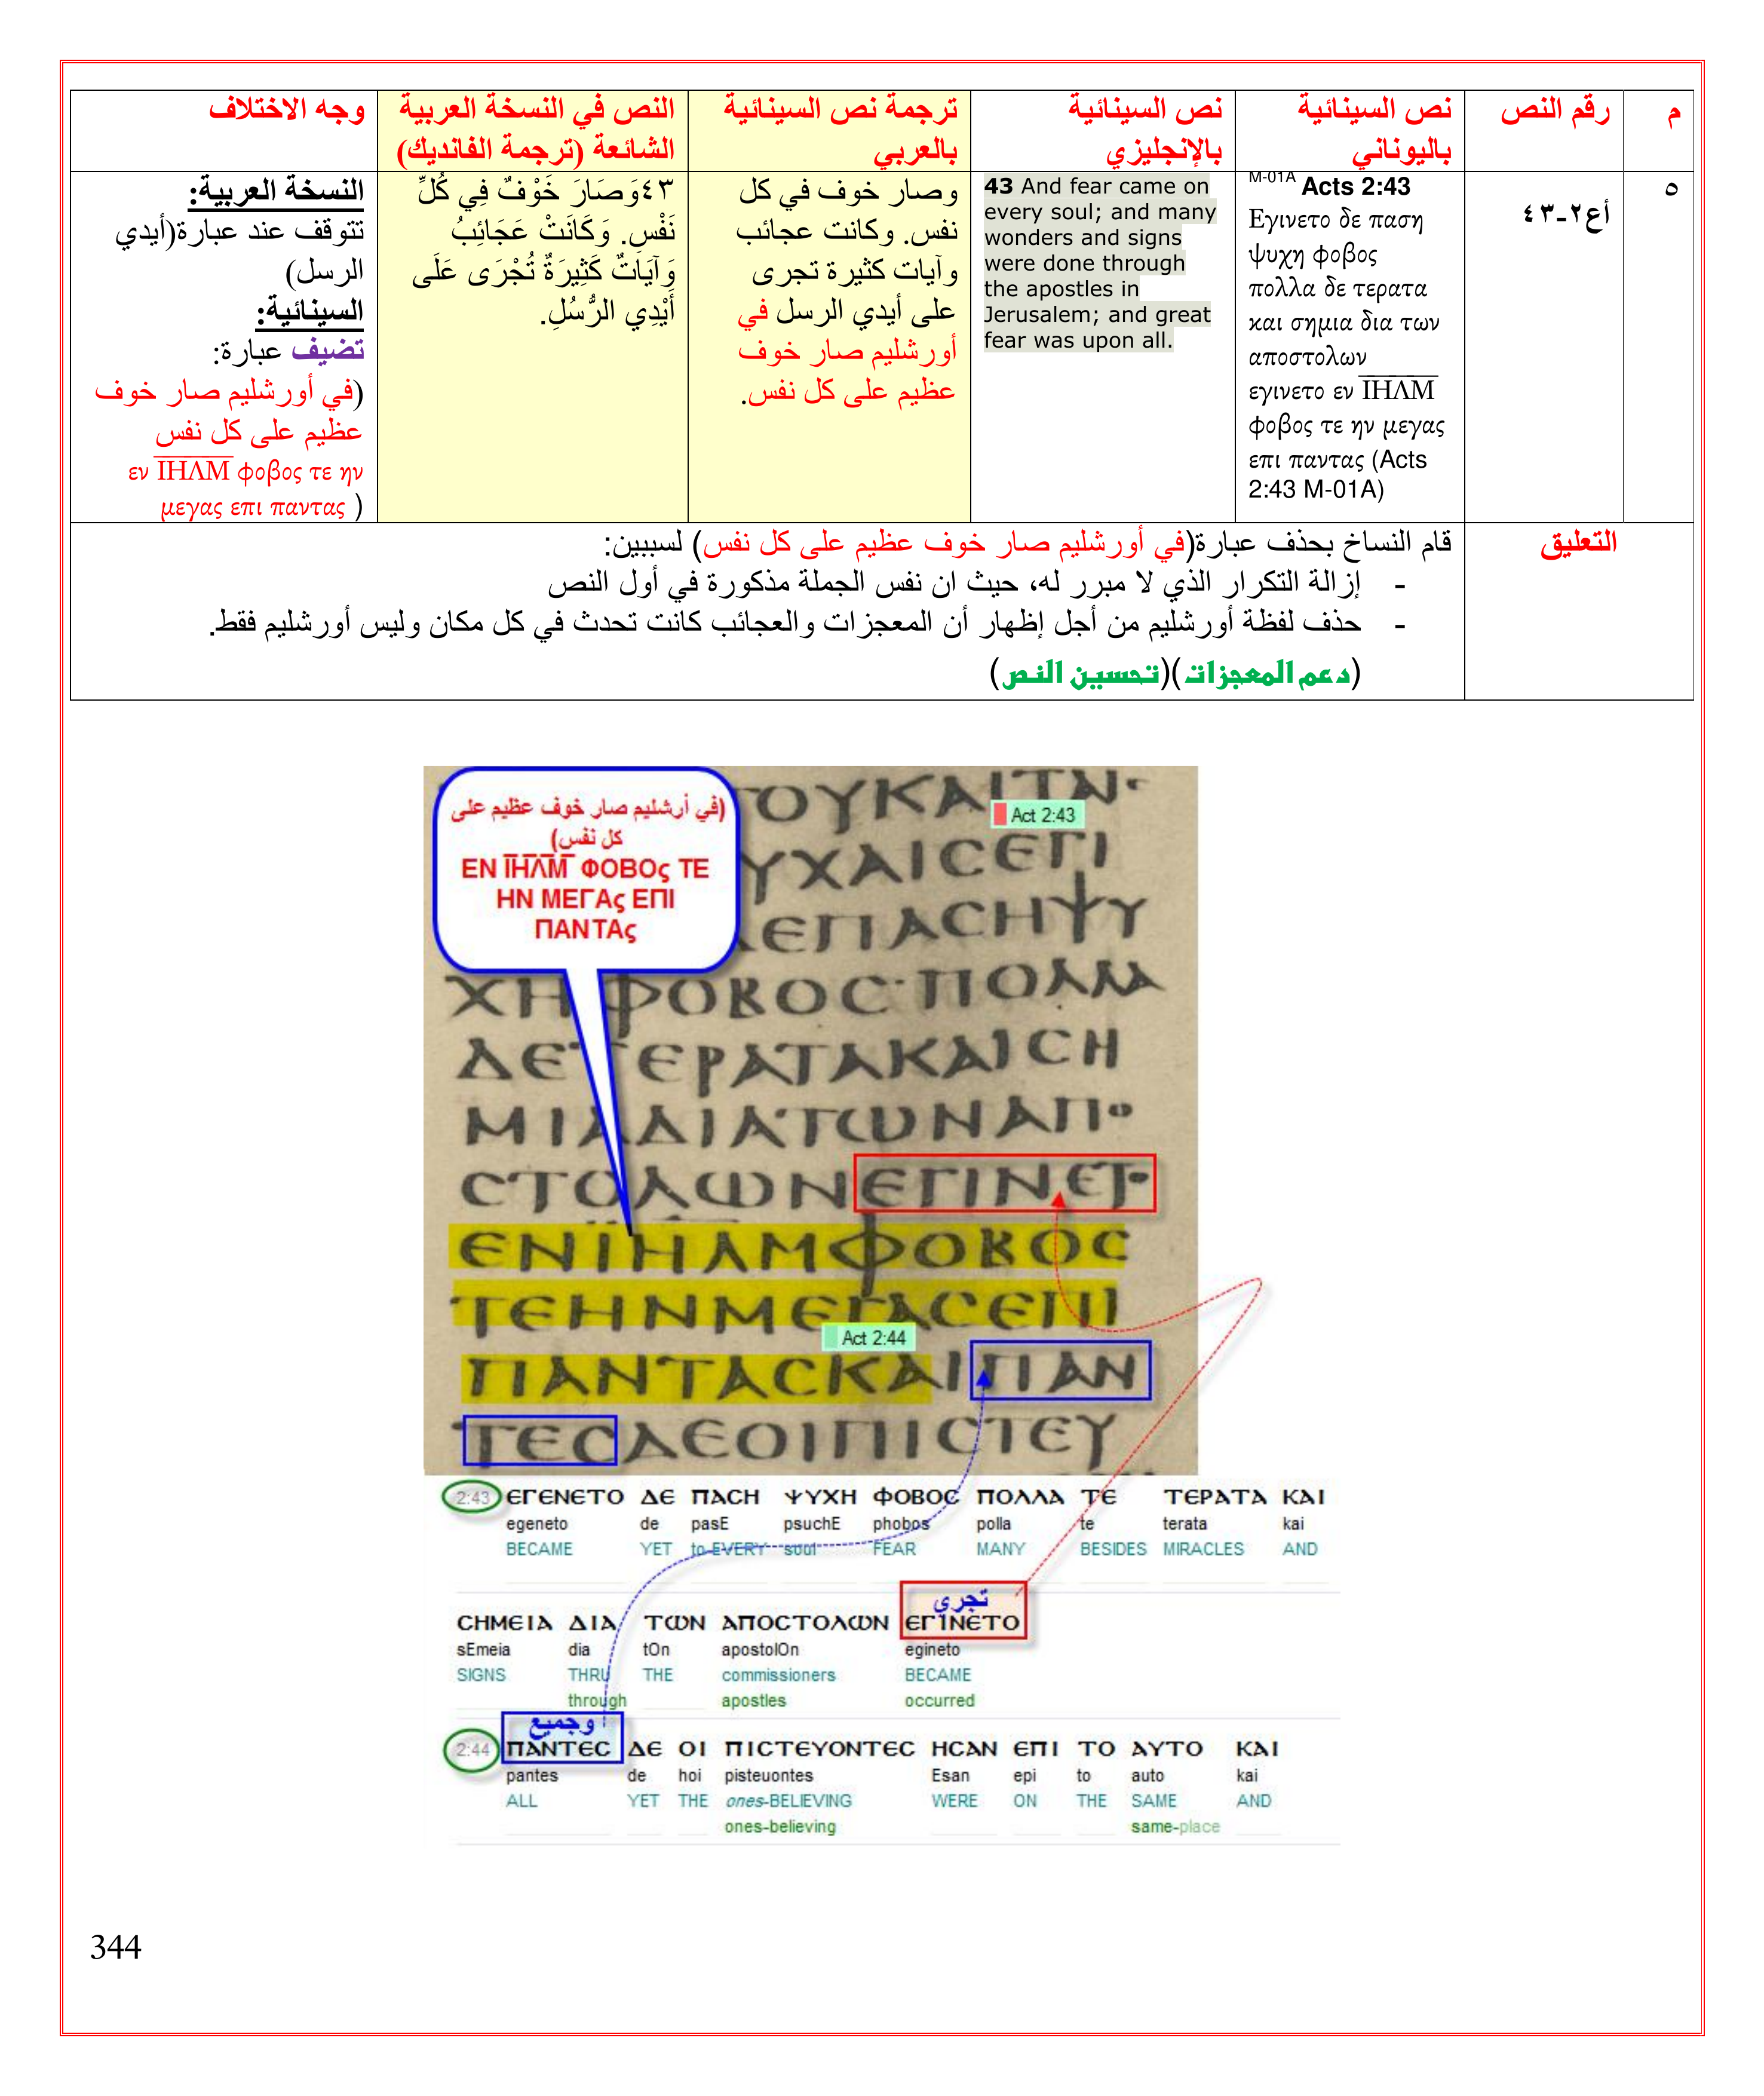 م
رقم النص
نص السينائية
باليوناني
نص السينائية
بالإنجليزي
ترجمة نص السينائية
بالعربي
النص في النسخة العربية
الشائعة (ترجمة الفانديك)
وجه الاختلاف
٥
أع٢-٤٣
M-01A Acts 2:43
Εγινετο δε παση
ψυχη φοβος
πολλα δε τερατα
και σημια δια των
αποστολων
εγινετο εν ΙΗΛΜ
φοβος τε ην μεγας
επι παντας (Acts
2:43 M-01A)
43 And fear came on
every soul; and many
wonders and signs
were done through
the apostles in
Jerusalem; and great
fear was upon all.
وصار خوف في كل
نفس. وكانت عجائب
وآيات كثيرة تجرى
على أيدي الرسل في
أورشليم صار خوف
عظيم على كل نفس.
٤٣وَصَارَ خَوْفٌ فِي كُلِّ
نَفْسٍ. وَكَانَتْ عَجَائِبُ
وَآيَاتٌ كَثِيرَةٌ تُجْرَى عَلَى
أَيْدِي الرُّسُلِ.
النسخة العربية:
تتوقف عند عبارة(أيدي
الرسل)
السينائية:
تضيف عبارة:
(في أورشليم صار خوف
عظيم على كل نفس
εν ΙΗΛΜ φοβος τε ην
μεγας επι παντας )
التعليق
قام النساخ بحذف عبارة(في أورشليم صار خوف عظيم على كل نفس) لسببين:
- إزالة التكرار الذي لا مبرر له، حيث ان نفس الجملة مذكورة في أول النص
- حذف لفظة أورشليم من أجل إظهار أن المعجزات والعجائب كانت تحدث في كل مكان وليس أورشليم فقط.
(دعم المعجزات)(تحسين النص)
(في أرشليم صار خوف عظيم على
كل نفس)
ΕΝ ΙΗΛΜ ΦΟΒΟς ΤΕ
ΗΝ ΜΕΓΑς ΕΠΙ
ΠΑΝΤΑς
ΟΥΚΑΙΤΝ·
Act 2:43
ΥΧΑΙϹΕΠΙ
ΔΕΠΑϹΗΨΥ
ΧΗΦΟΒΟϹ·ΠΟΛΛΑ
ΔΕΤΕΡΑΤΑΚΑΙϹΗ
ΜΙΑΔΙΑΤΩΝΑΠΟ
ϹΤΟΛΩΝΕΓΙΝΕΤΟ
ΕΝΙΗΛΜΦΟΒΟϹ
ΤΕΗΝΜΕΓΑϹΕΠΙ
Act 2:44
ΠΑΝΤΑϹΚΑΙΠΑΝ
ΤΕϹΔΕΟΙΠΙϹΤΕΥ
2:43 ΕΓΕΝΕΤΟ ΔΕ ΠΑϹΗ ΨΥΧΗ ΦΟΒΟϹ ΠΟΛΛΑ ΤΕ ΤΕΡΑΤΑ ΚΑΙ
egeneto de pasE psuchE phobos polla te terata kai
BECAME YET to-EVERY soul FEAR MANY BESIDES MIRACLES AND
تجرى
ϹΗΜΕΙΑ ΔΙΑ ΤΩΝ ΑΠΟϹΤΟΛΩΝ ΕΓΙΝΕΤΟ
sEmeia dia tOn apostolOn egineto
SIGNS THRU THE commissioners BECAME
through apostles occurred
وجميع
2:44 ΠΑΝΤΕϹ ΔΕ ΟΙ ΠΙϹΤΕΥΟΝΤΕϹ ΗϹΑΝ ΕΠΙ ΤΟ ΑΥΤΟ ΚΑΙ
pantes de hoi pisteuontes Esan epi to auto kai
ALL YET THE ones-BELIEVING WERE ON THE SAME AND
ones-believing same-place
344